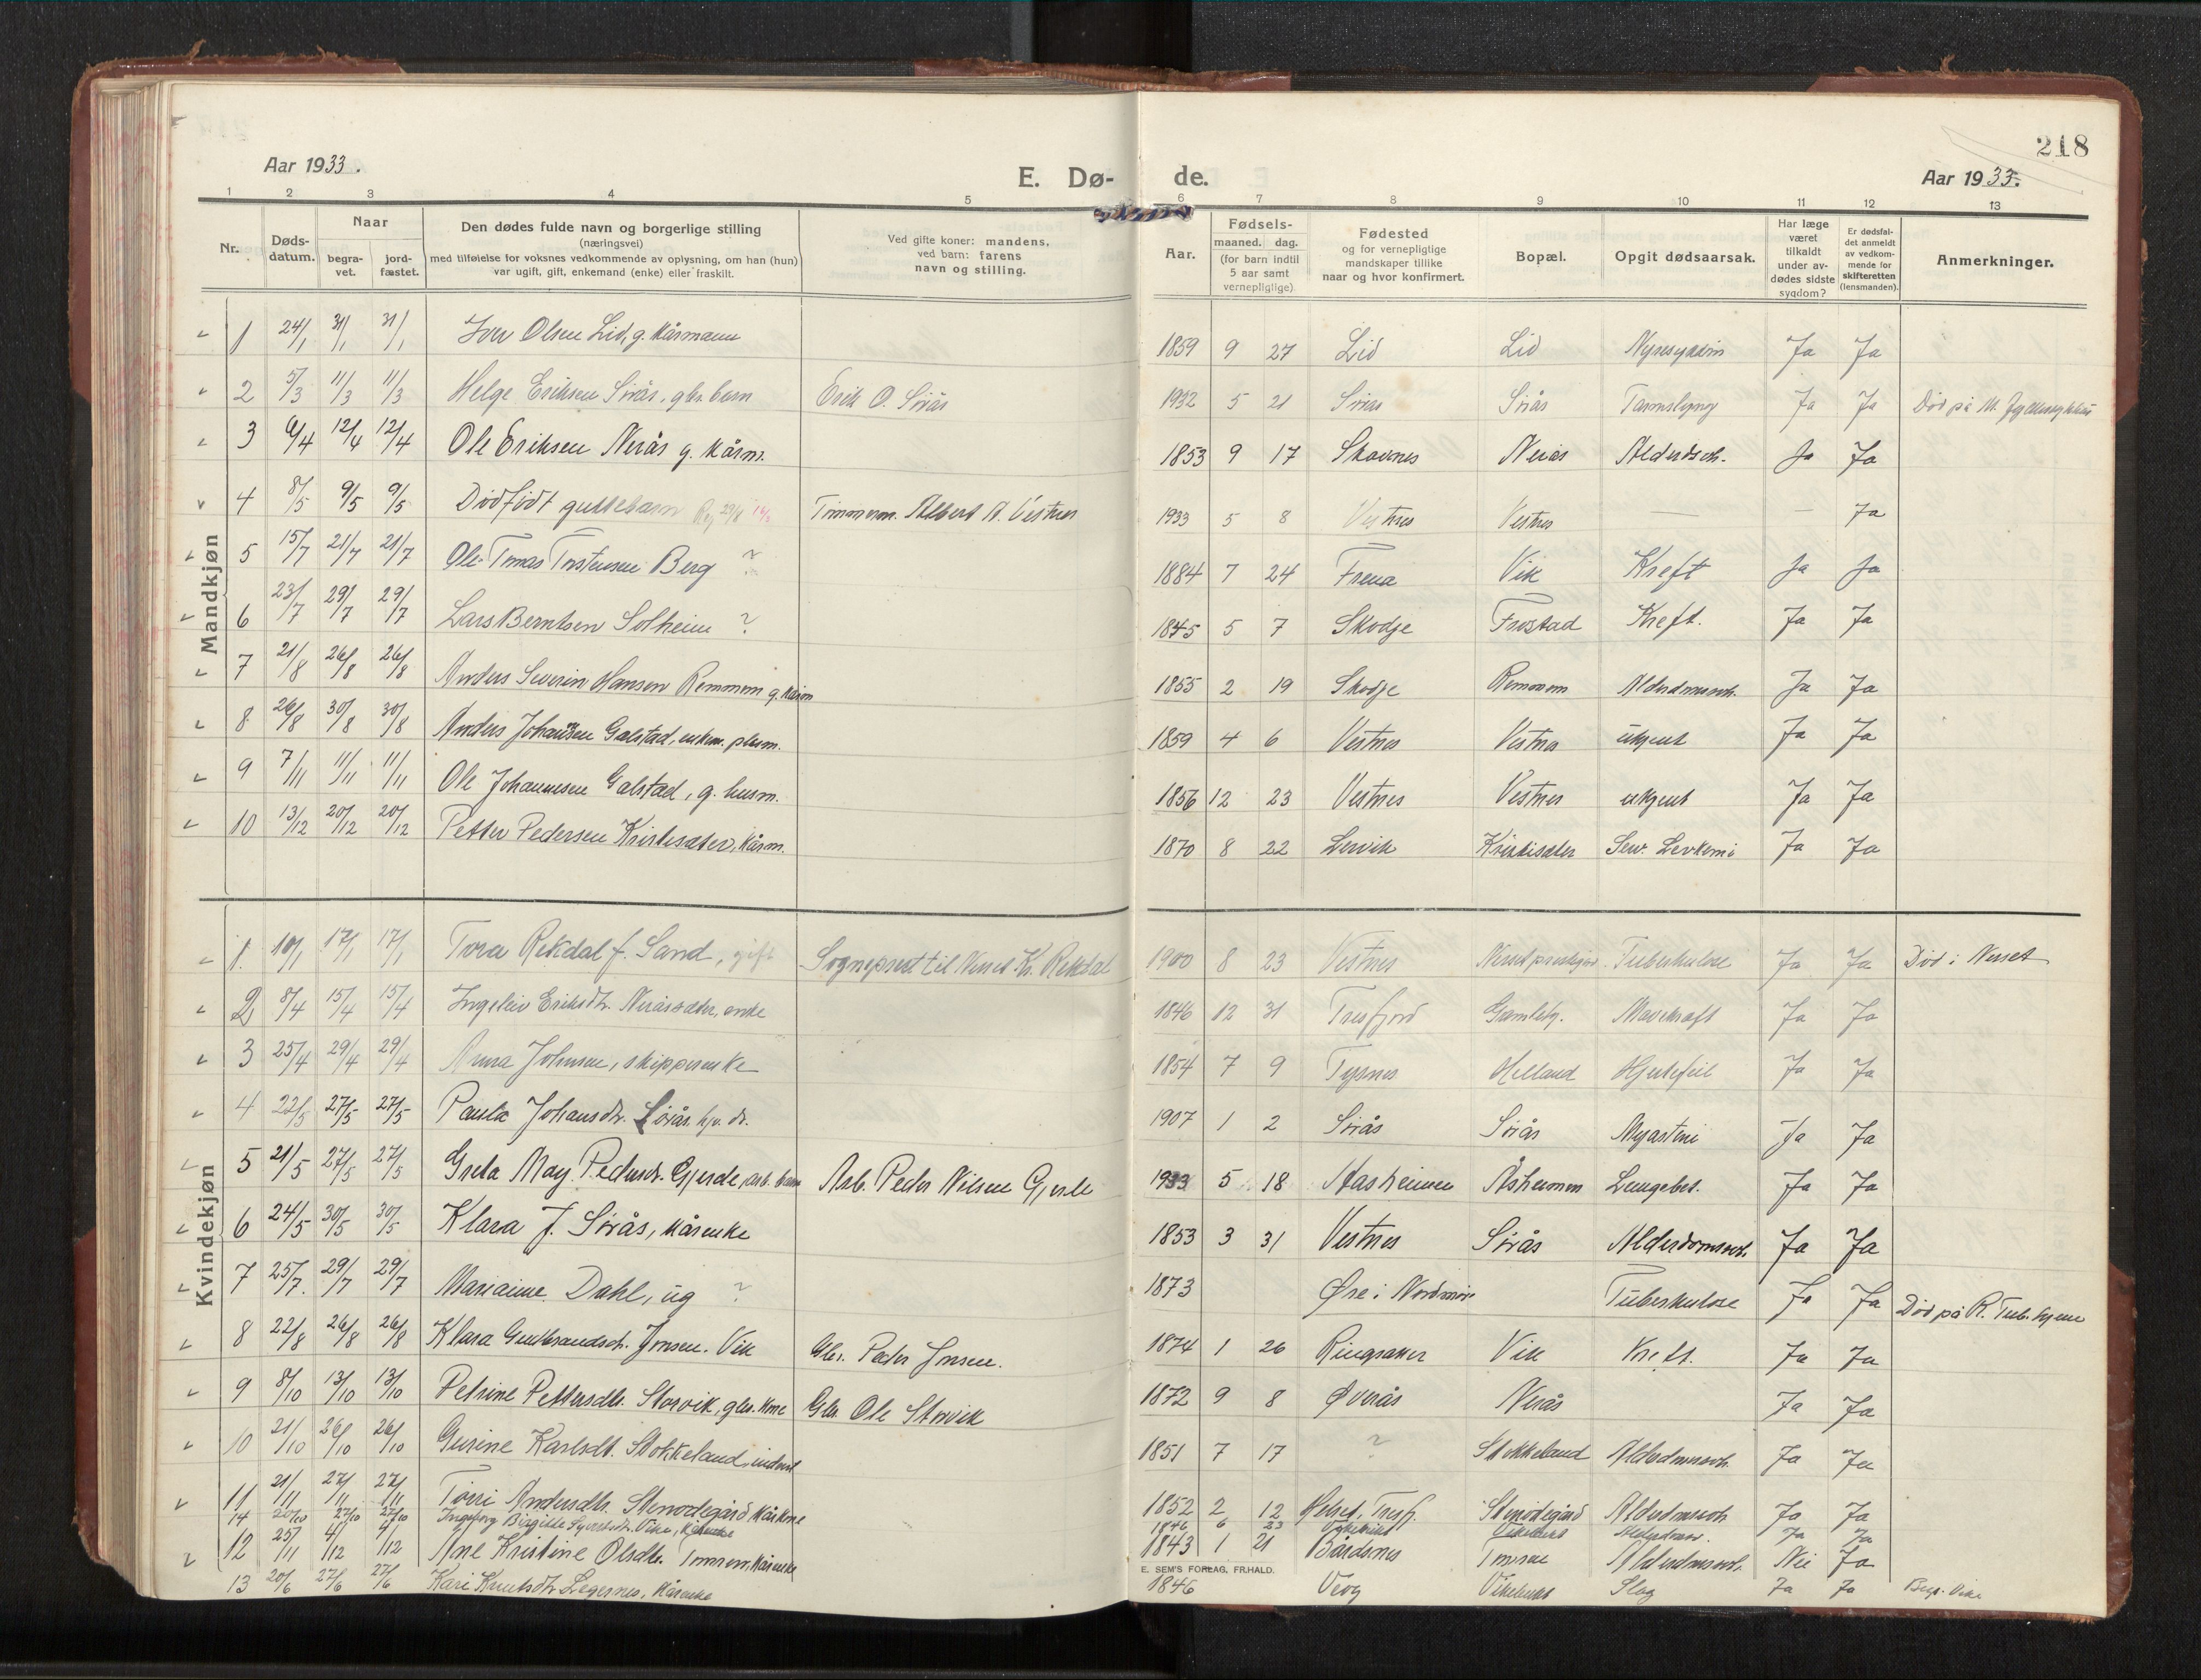 218
Aar 1933.
E. Dø-
de.
Aar 1933.
1 2 3 4 5 6 7 8 9 10 11 12 13
Nr.
Døds-
datum.
Naar
begra-
vet.
jord-
fæstet.
Den dødes fulde navn og borgerlige stilling
(næringsvei)
med tilføielse for voksnes vedkommende av oplysning, om han (hun)
var ugift, gift, enkemand (enke) eller fraskilt.
Ved gifte koner: mandens,
ved barn: farens
navn og stilling.
Aar.
Fødsels-
maaned. dag.
(for barn indtil
5 aar samt
vernepligtige)
Fødested
og for vernepligtige
mandskaper tillike
naar og hvor konfirmert.
Bopæl.
Opgit dødsaarsak.
Har læge
været
tilkaldt
under av-
dødes sidste
sygdom?
Er dødsfal-
det anmeldt
av vedkom-
mende for
skifteretten
(lensmanden).
Anmerkninger.
Mandkjøn
1 24/1 31/1 31/1 Iver Olsen Lid, g. kårmann 1859 9 27 Lid Lid Nyresykdom Ja Ja
2 5/3 11/3 11/3 Helge Eriksen Sørås, gbr. barn Erik O. Sørås 1932 5 21 Sørås Sørås Tarmslyng Ja Ja Død på M. Fylkessykehus
3 6/4 12/4 12/4 Ole Eriksen Nerås g. kårm. 1853 9 17 Skavnes Nerås Alderdsv. Ja Ja
4 8/5 9/5 9/5 Dødfødt guttebarn Timmerm. Albert A. Vestnes 1933 5 8 Vestnes Vestnes — — Ja
5 15/7 21/7 21/7 Ole Tomas Torstensen Berg ? 1884 7 24 Frena Vik Kreft Ja Ja
6 23/7 29/7 29/7 Lars Berntsen Solheim ? 1845 5 7 Skodje Frostad Kreft. Ja Ja
7 21/8 26/8 26/8 Anders Severin Hansen Remmem g. kårm 1855 2 19 Skodje Remmem Alderdomssv. Ja Ja
8 26/8 30/8 30/8 Anders Johansen Galstad, enkem. plsm. 1859 4 6 Vestnes Vestnes ukjent Ja Ja
9 7/11 11/11 11/11 Ole Johannesen Galstad, g. husm. 1856 12 23 Vestnes Vestnes ukjent Ja Ja
10 13/12 20/12 20/12 Petter Pedersen Kristisæter, kårm. 1870 8 22 Lervik Kristisæter Sev. Levkemi Ja Ja
Kvindekjøn
1. 10/1 17/1 17/1 Tora Rekdal f. Sand, gift Sogneprest til Nesset Kr. Rekdal 1900 8 23 Vestnes Nesset prestegård Tuberkulose Ja Ja Død i Nesset
2 8/4 15/4 15/4 Ingeleiv Eriksdtr. Neråssæter, enke 1846 12 31 Tresfjord Gamleh. Mavekreft Ja Ja
3 25/4 29/4 29/4 Anna Johnsen, skipperenke 1854 7 9 Tysnes Helland Hjertefeil Ja Ja
4 22/5 27/5 27/5 Paula Johansdtr. Sørås hjv. dr. 1907 1 2 Sørås Sørås Myasteni Ja Ja
5 21/5 27/5 27/5 Greta May Pedersdr. Gjerde, arb. barn Arb. Peder Nilsen Gjerde 1933 5 18 Aasheimen Åsheimen Lungebet. Ja Ja
6 24/5 30/5 30/5 Klara J. Sørås, kårenke 1853 3 31 Vestnes Sørås Alderdomssv. Ja Ja
7 25/7. 29/7 29/7 Marianne Dahl, ug ? 1873 Øre i Nordmøre Tuberkulose Ja Ja Død på R. Tub. hjem
8 22/8 26/8 26/8 Klara Gudbrandsdr. Jonsen. Vik Gbr. Peder Jonsen. 1874 1 26 Ringsaker Vik Kreft. Ja Ja
9 8/10 13/10 13/10 Petrine Pettersdtr. Storvik, gbr. kone Gbr. Ole Storvik 1872 9 8 Øverås Nerås Ja Ja
10 21/10 26/10 26/10 Gurine Karlsdt. Stokkeland, inderst 1851 7 17 ? Stokkeland Alderdomssv. Ja Ja
11 21/11 27/11 27/11 Torri Andersdtr. Stenødegård kårkone 1852 2 12 Helset, Tresf. Stenødegård Alderdomssv. Ja Ja
14 20/10 27/10 27/10 Ingeborg Birgitte Syvertsdr. Vike, kårenke 1846 6 23 Vikebukt Alderdomssv. Ja Ja
12 25/11 4/12 4/12 Ane Kristine Olsdtr. Tomren, kårenke 1843 1 21 Bårdsnes Tomren Alderdomssv. Nei Ja
E. SEM'S FORLAG, FR.HALD.
13 20/6 27/6 27/6 Kari Knutsdtr Legernes, kårenke 1846 Vevg Vikebukt Slag Ja Ja Begr. Vike